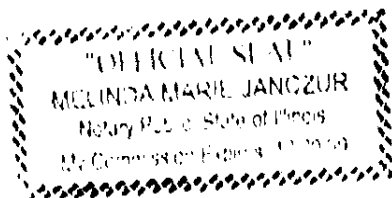 "OFFICIAL SEAL"
MELINDA MARIE JANCZUR
Notary Public, State of Illinois
My Commission Expires